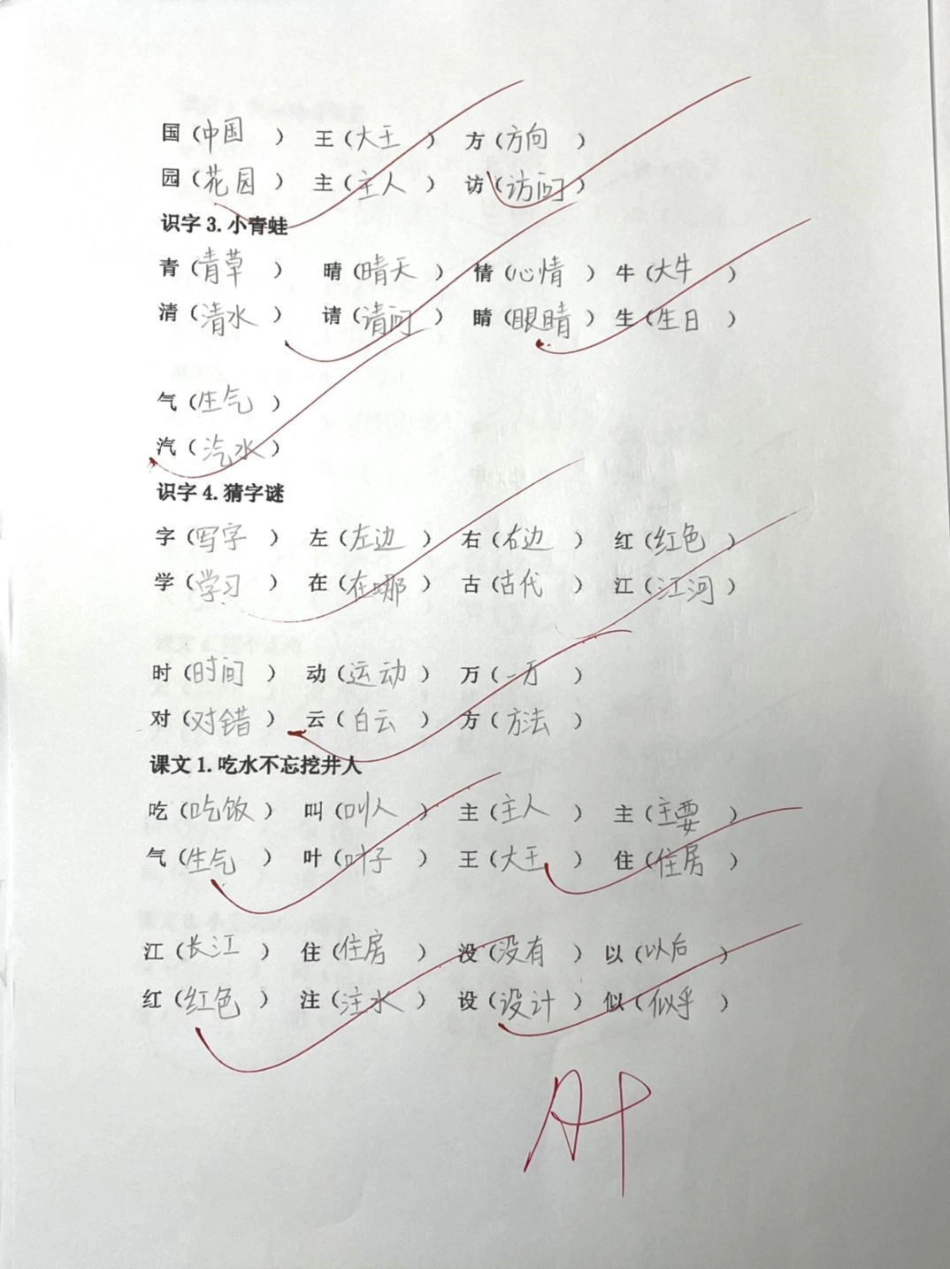 国（中国 ） 王（大王 ） 方（方向 ）
园（花园 ） 主（主人 ） 访（访问 ）
识字 3. 小青蛙
青（青草 ） 晴（晴天 ） 情（心情 ） 牛（大牛 ）
清（清水 ） 请（请问 ） 睛（眼睛 ） 生（生日 ）
气（生气 ）
汽（汽水 ）
识字 4. 猜字谜
字（写字 ） 左（左边 ） 右（右边 ） 红（红色 ）
学（学习 ） 在（在哪 ） 古（古代 ） 江（江河 ）
时（时间 ） 动（运动 ） 万（一万 ）
对（对错 ） 云（白云 ） 方（方法 ）
课文 1. 吃水不忘挖井人
吃（吃饭 ） 叫（叫人 ） 主（主人 ） 主（主要 ）
气（生气 ） 叶（叶子 ） 王（大王 ） 住（住房 ）
江（长江 ） 住（住房 ） 没（没有 ） 以（以后 ）
红（红色 ） 注（注水 ） 设（设计 ） 似（似乎 ）
A+